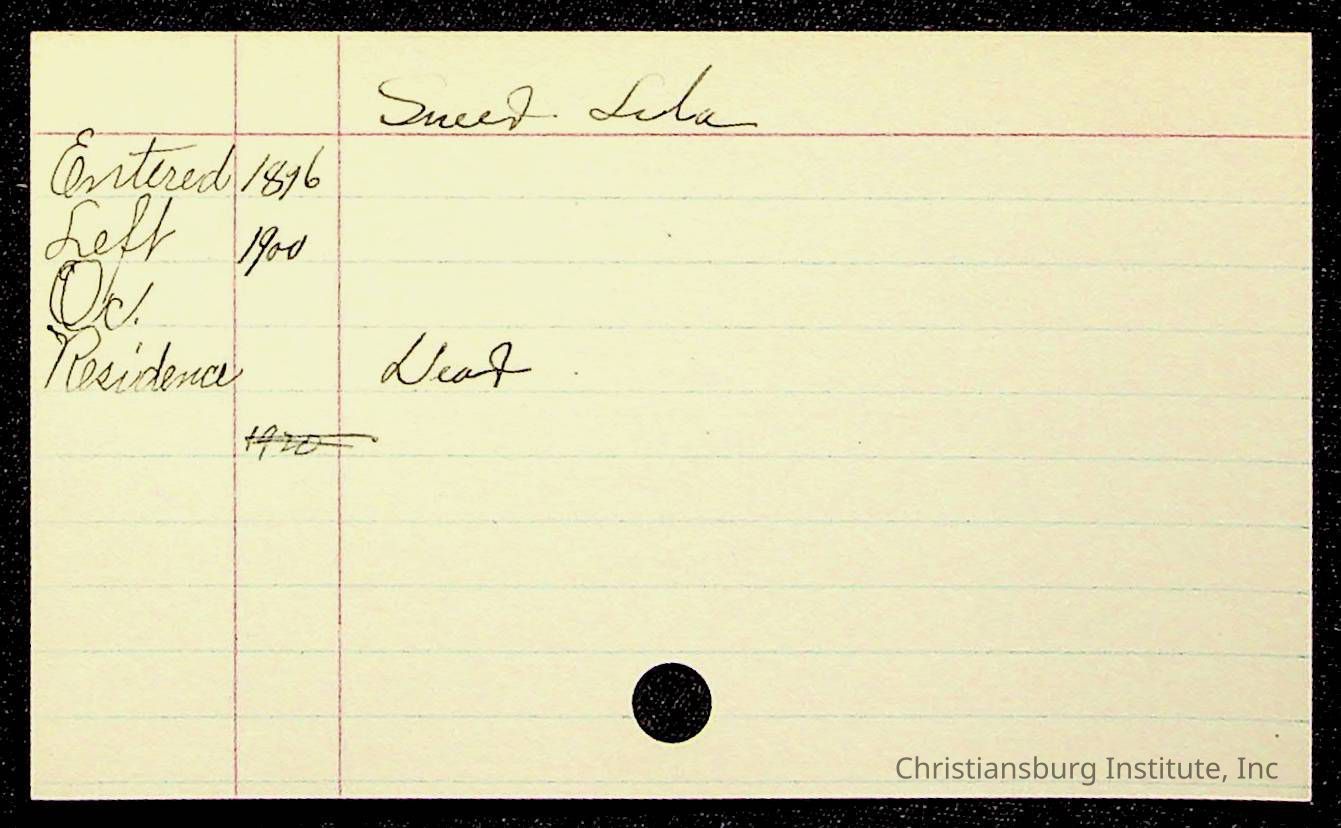 Sneed Lula
Entered 1896
Left 1900
Oc.
Residence Dead
1920
Christiansburg Institute, Inc